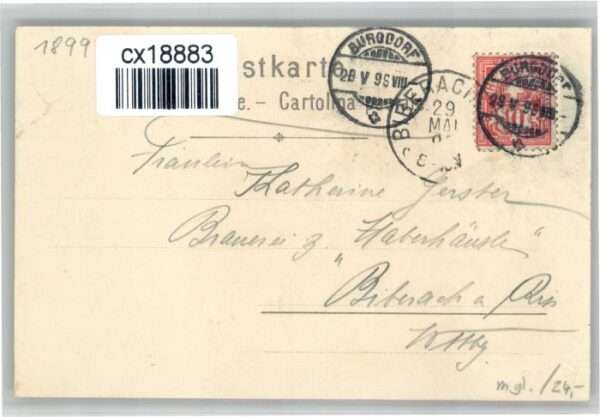 1899
cx18883
stkarte
e. - Cartolina
BURGDORF
28 V 99 VIII
BIBERACH
29
MAI
BURGDORF
28 V 99 VIII
Fräulein
Katharine Gerster
Brauerei z "Haberhäusle"
Biberach a Riss
Wttbg
mgl. /24,-